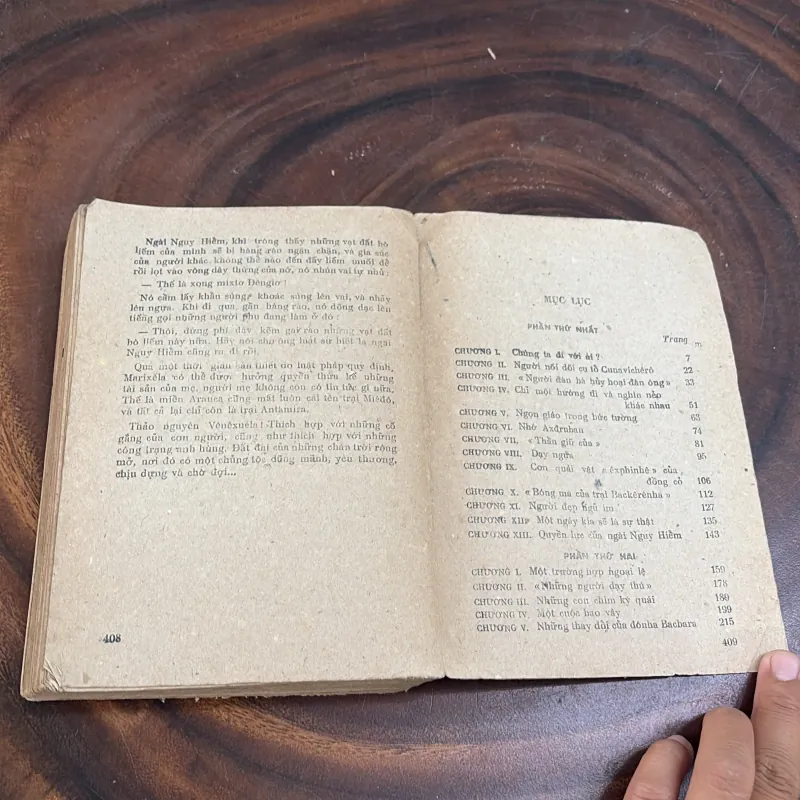 Ngài Nguy Hiểm, khi trông thấy những vạt đất bỏ
liếm của mình sẽ bị hàng rào ngăn chặn, và gia súc
của người khác không thể nào đến đấy liếm muối để
rồi lọt vào vòng dây thừng của nó, nó nhún vai tự nhủ:
— Thế là xong mixtơ Đêngiơ!
Nó cầm lấy khẩu súng, khoác súng lên vai, và nhảy
lên ngựa. Khi đi qua, gần hàng rào, nó dõng dạc lên
tiếng gọi những người phu đang làm ở đó:
— Thôi, đừng phí dây kẽm gai rào những vạt đất
bò liếm này nữa. Hãy nói cho ông luật sư biết là ngài
Nguy Hiểm cũng ra đi rồi.
Qua một thời gian cần thiết do luật pháp quy định,
Marixêla có thể được hưởng quyền thừa kế những
tài sản của mẹ, người mẹ không còn có tin tức gì nữa.
Thế là miền Arauca cũng mất luôn cái tên trại Miêđô,
và tất cả lại chỉ còn là trại Antamira.
Thảo nguyên Vênêxuêla! Thích hợp với những cố
gắng của con người, cũng như thích hợp với những
công trạng anh hùng. Đất đai của những chân trời rộng
mở, nơi đó có một chủng tộc dũng mãnh, yêu thương,
chịu đựng và chờ đợi...
408
MỤC LỤC
PHẦN THỨ NHẤT
Trang
CHƯƠNG I. Chúng ta đi với ai? 7
CHƯƠNG II. Người nối dõi cụ tổ Cunavichêrô 22
CHƯƠNG III. «Người đàn bà hủy hoại đàn ông» 33
CHƯƠNG IV. Chỉ một hướng đi và nghìn nẻo
khác nhau 51
CHƯƠNG V. Ngọn giáo trong bức tường 63
CHƯƠNG VI. Nhớ Axđruban 74
CHƯƠNG VII. «Thần giữ của» 81
CHƯƠNG VIII. Dạy ngựa 95
CHƯƠNG IX. Con quái vật «êxphinhê» của
đồng cỏ 106
CHƯƠNG X. «Bóng ma của trại Backêrênha» 112
CHƯƠNG XI. Người đẹp ngủ im 127
CHƯƠNG XII. Một ngày kia sẽ là sự thật 135
CHƯƠNG XIII. Quyền lực của ngài Nguy Hiểm 143
PHẦN THỨ HAI
CHƯƠNG I. Một trường hợp ngoại lệ 159
CHƯƠNG II. «Những người dạy thú» 178
CHƯƠNG III. Những con chim kỳ quái 180
CHƯƠNG IV. Một cuộc bao vây 199
CHƯƠNG V. Những thay đổi của đônha Bacbara 215
409